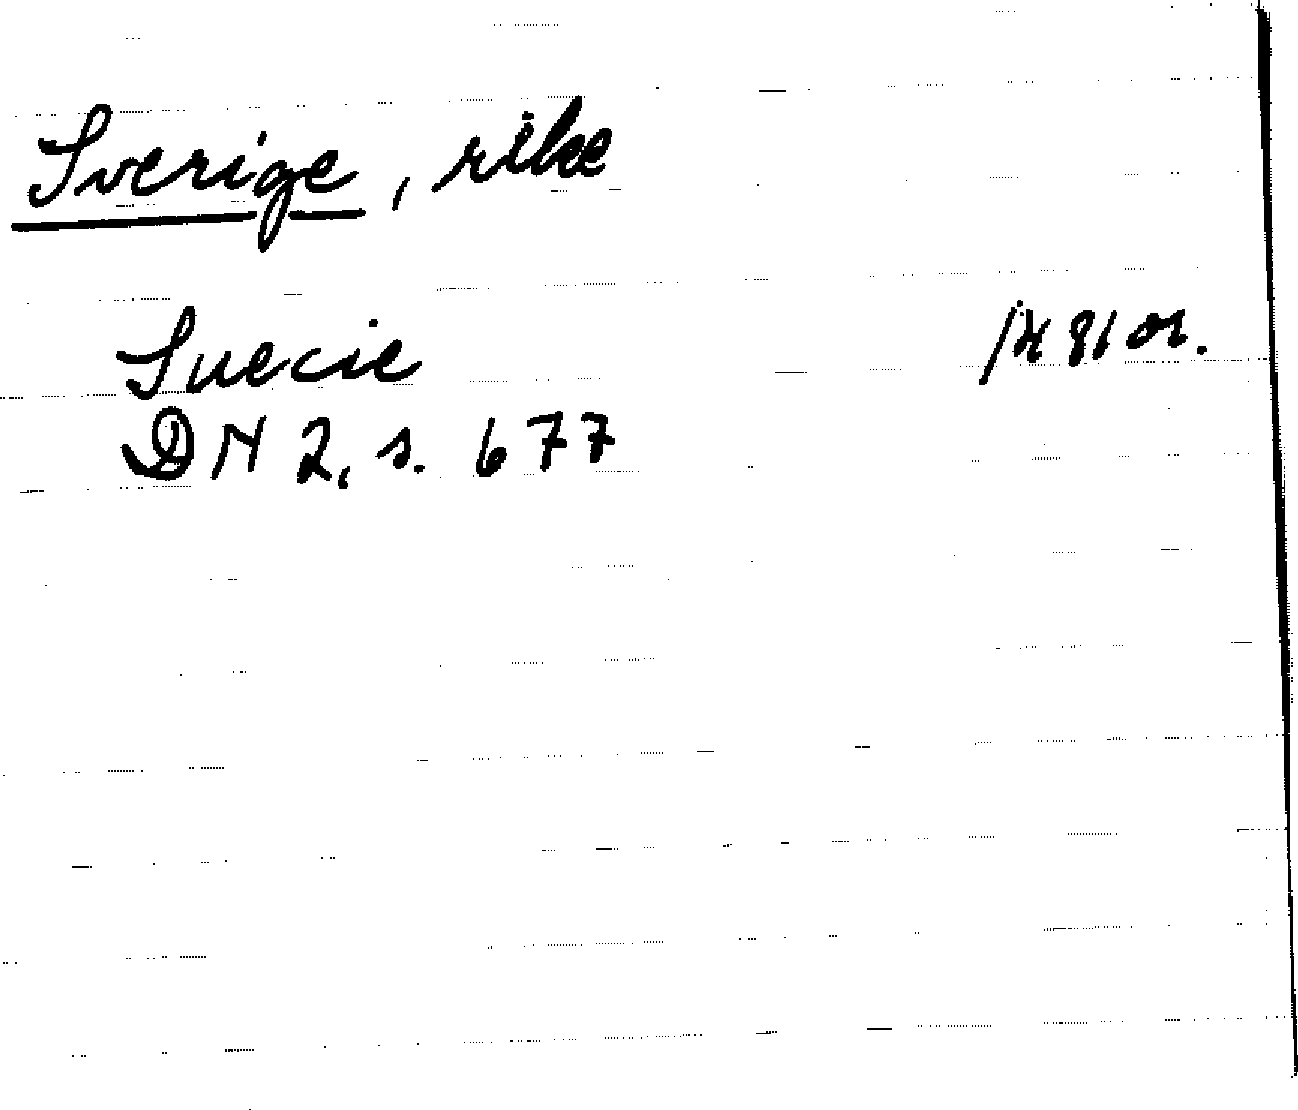 Sverige, rike
Suecie 1481 or.
DN 2, s. 677